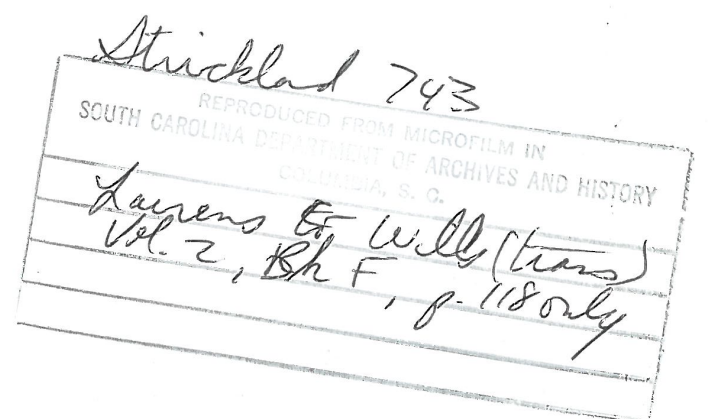 Strickland 743
REPRODUCED FROM MICROFILM IN
SOUTH CAROLINA DEPARTMENT OF ARCHIVES AND HISTORY
COLUMBIA, S. C.
Laurens Wills (trans)
Vol. 2, Bk F, p. 118 only